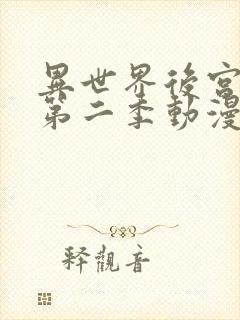 異世界後宮
第二季動漫
释觀音